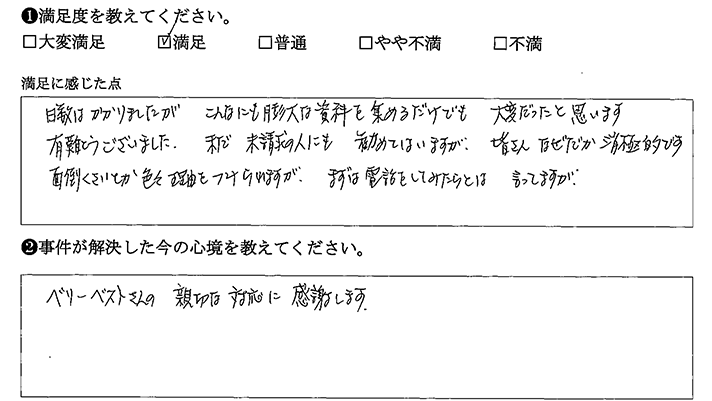 ❶満足度を教えてください。
□大変満足 ☑満足 □普通 □やや不満 □不満
満足に感じた点
日数はかかりましたが こんなにも膨大な資料を集めるだけでも 大変だったと思います
有難うございました. まだ 未請求の人にも 勧めてはいますが、皆さん なぜだか 消極的です
面倒くさいとか 色々 理由を つけられますが、まずは 電話をしてみたらとは 言ってますが.
❷事件が解決した今の心境を教えてください。
ベリーベストさんの 親切な 対応に 感謝します.